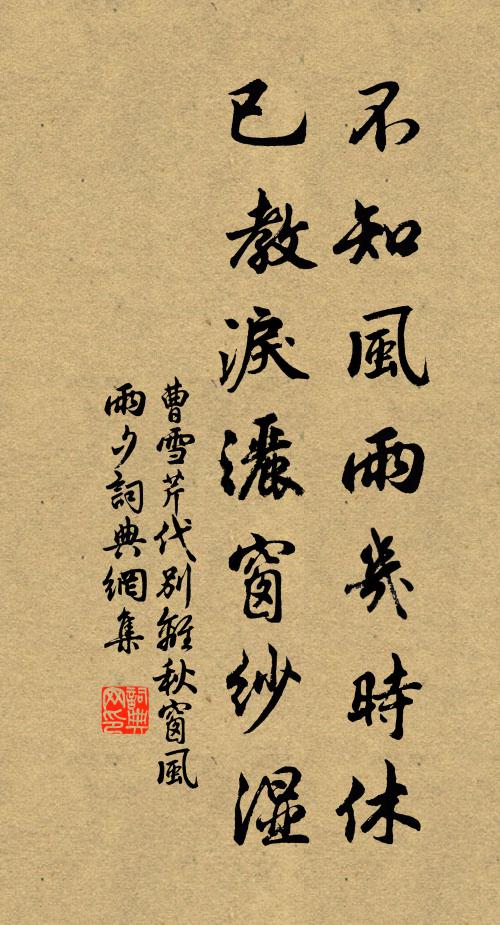 不知風雨幾時休
已教淚灑窗紗濕
曹雪芹代别離秋窗風
雨夕詞典網集
詞典网印